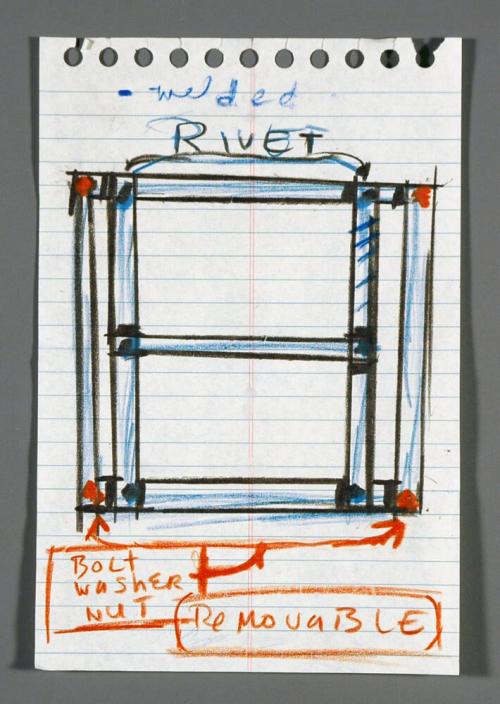 - welded -
RIVET
BOLT
WASHER
NUT
REMOVABLE